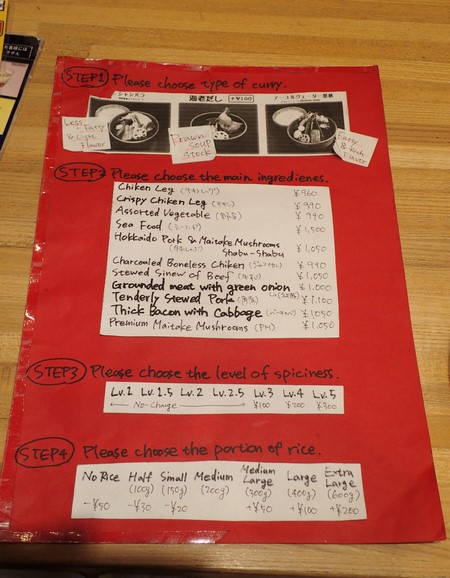 STEP1 Please choose type of curry.
シャンバラ 海老だし +¥100
Less Fatty & Light Flavor
Prawn Soup Stock
Fatty & Rich Flavor
STEP2 Please choose the main ingredienes.
Chiken Leg ¥960
Crispy Chiken Leg ¥990
Assorted Vegetable ¥990
Sea Food ¥1,500
Hokkaido Pork & Maitake Mushrooms
Shabu-Shabu ¥1,050
Charcoaled Boneless Chiken ¥990
Stewed Sinew of Beef ¥1,050
Grounded meat with green onion ¥1,000
Tenderly Stewed Pork (角煮) ¥1,100
Thick Bacon with Cabbage ¥1,050
Premium Maitake Mushrooms (PM) ¥1,050
STEP3 Please choose the level of spiciness.
Lv.1 Lv.1.5 Lv.2 Lv.2.5 Lv.3 Lv.4 Lv.5
← No-Charge → ¥100 ¥200 ¥300
STEP4 Please choose the portion of rice.
No Rice Half Small Medium Medium Large Large Extra Large
(100g) (150g) (200g) (300g) (400g) (600g)
-¥50 -¥30 -¥20 +¥50 +¥100 +¥200